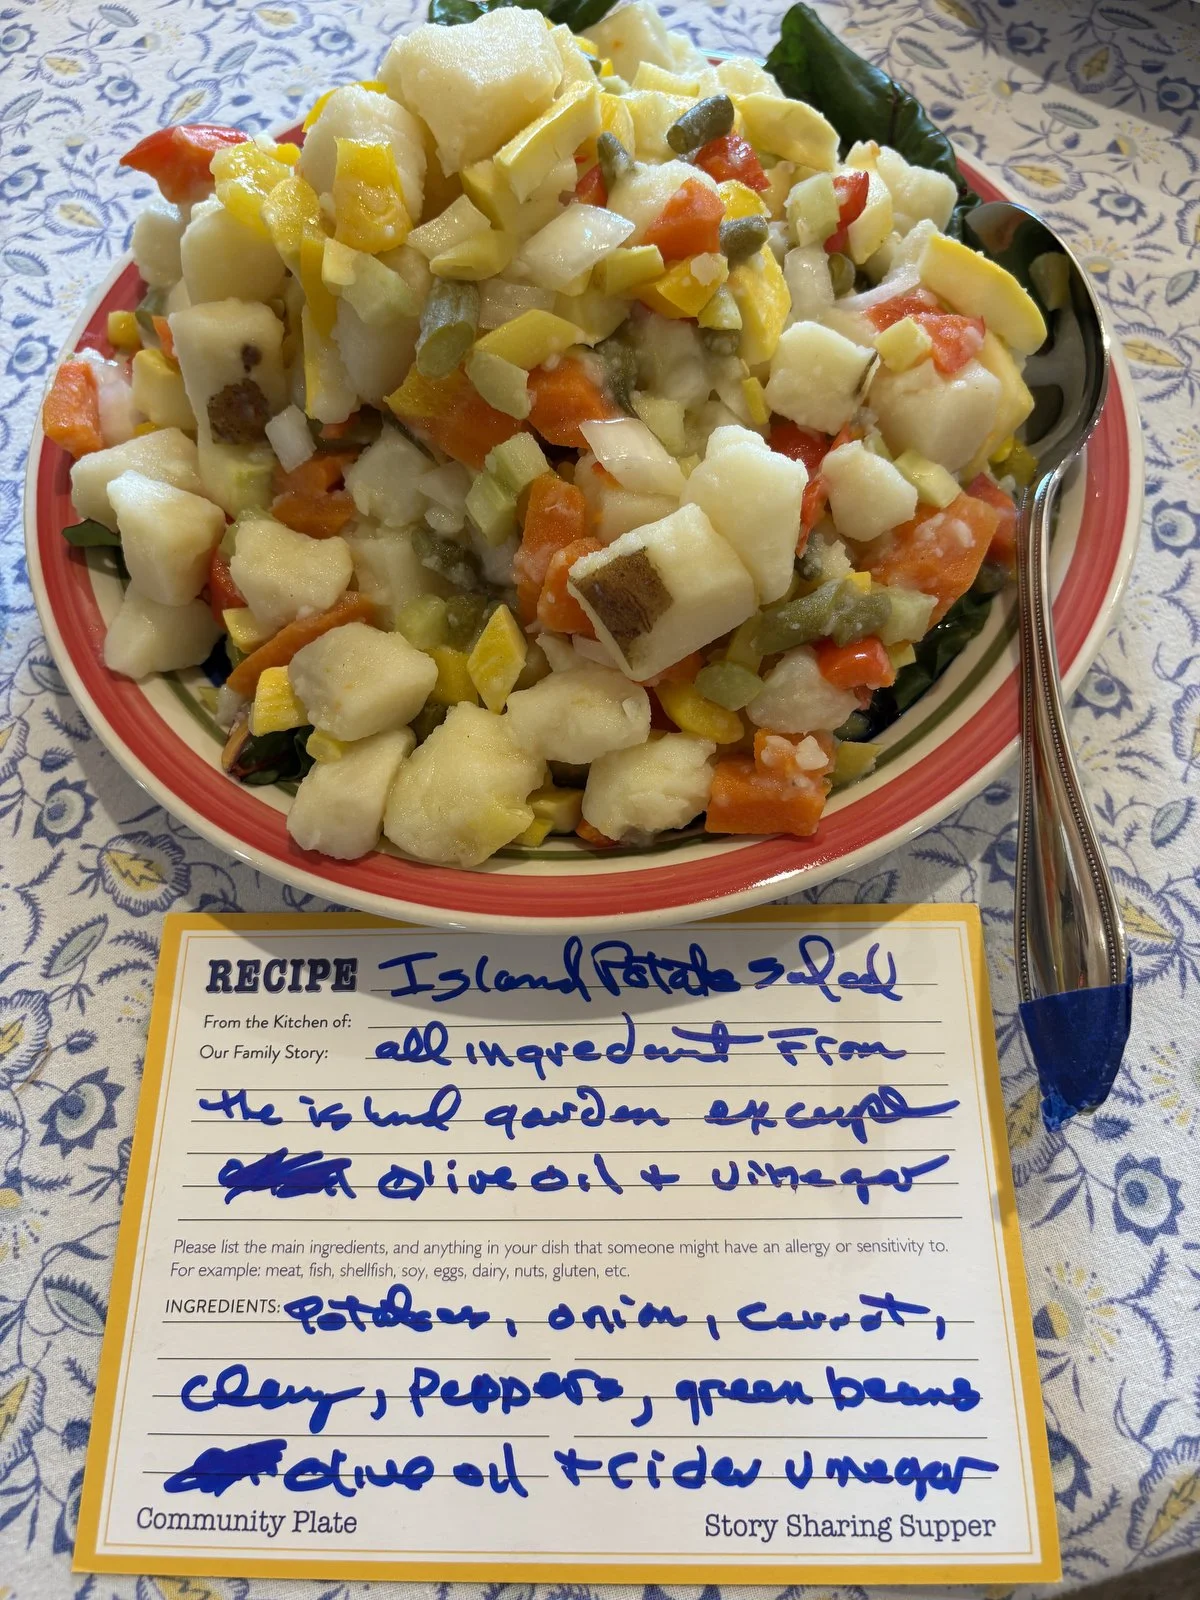 RECIPE Island Potato Salad
From the Kitchen of:
Our Family Story: all ingredient From
the island garden except
olive oil + vinegar
Please list the main ingredients, and anything in your dish that someone might have an allergy or sensitivity to.
For example: meat, fish, shellfish, soy, eggs, dairy, nuts, gluten, etc.
INGREDIENTS: Potatoes, onion, Carrot,
Celery, Peppers, green beans
olive oil + cider vinegar
Community Plate
Story Sharing Supper